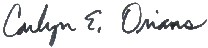 Carlyn E. Orians